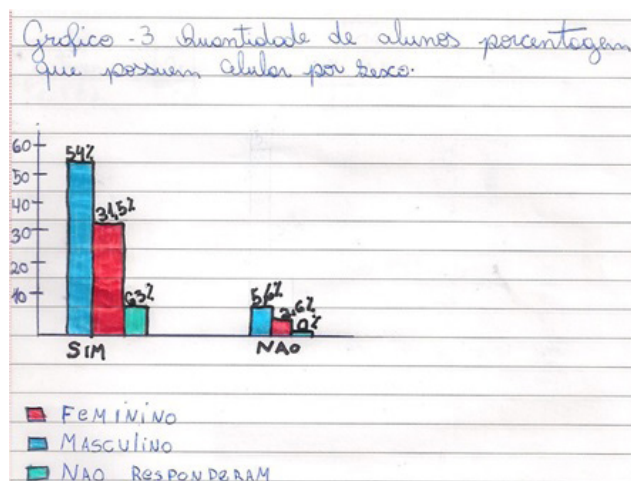 Gráfico - 3 Quantidade de alunos porcentagem
que possuem celular por sexo.
60
54%
50
40
31,5%
30
20
10
6,3%
5,6%
2,6%
0%
SIM
NAO
FEMININO
MASCULINO
NAO RESPONDERAM